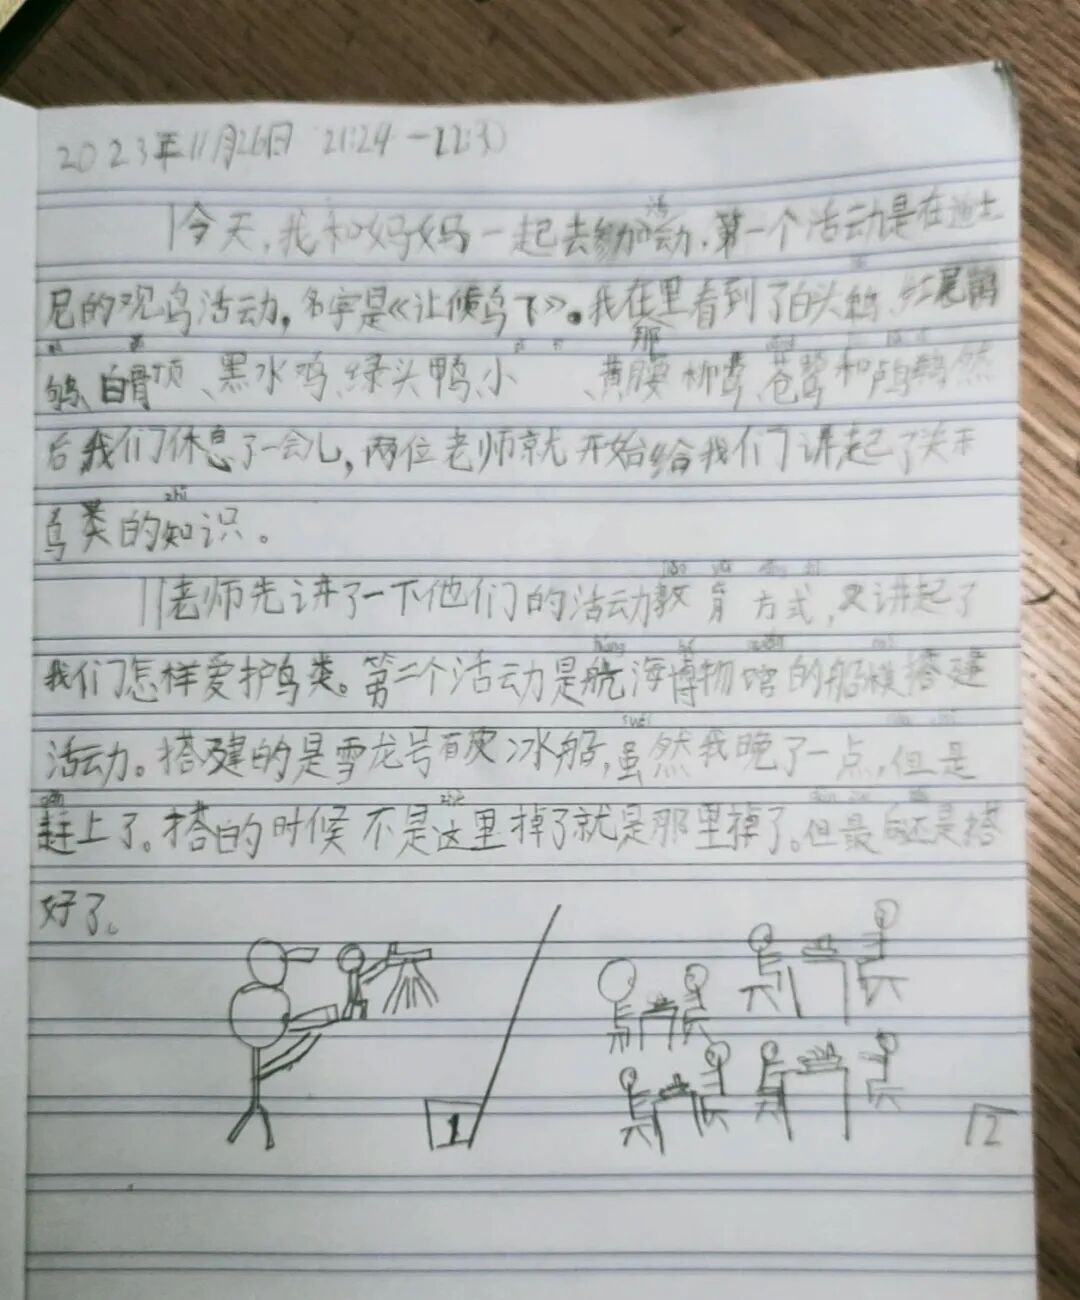 2023年11月26日 21:24-22:30
今天,我和妈妈一起去参加活动,第一个活动是在迪士
尼的观鸟活动,名字是《让候鸟下》。我在那里看到了白头鹎、红尾鹊
鸲、白骨顶、黑水鸡、绿头鸭、小 、黄腰柳莺、苍鹭和 然
后我们休息了一会儿,两位老师就开始给我们讲起了关于
zhi
鸟类的知识。
老师先讲了一下他们的活动教育方式,又讲起了
我们怎样爱护鸟类。第二个活动是航海博物馆的船模搭建
活动。搭建的是雪龙号 冰船,虽然我晚了一点,但是
赶上了。搭的时候不是这里掉了就是那里掉了。但最 还是搭
好了。
1
2